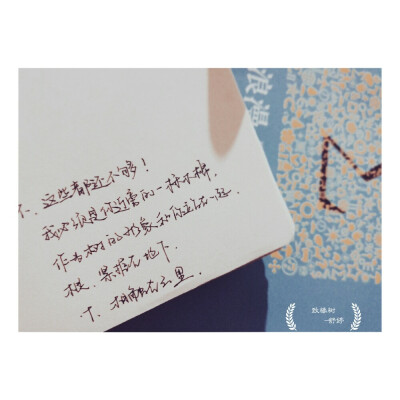 不、这些都还不够!
我必须是你近旁的一株木棉,
作为树的形象和你站在一起.
根、紧握在地下
叶、相触在云里.
浪漫
致橡树
-舒婷